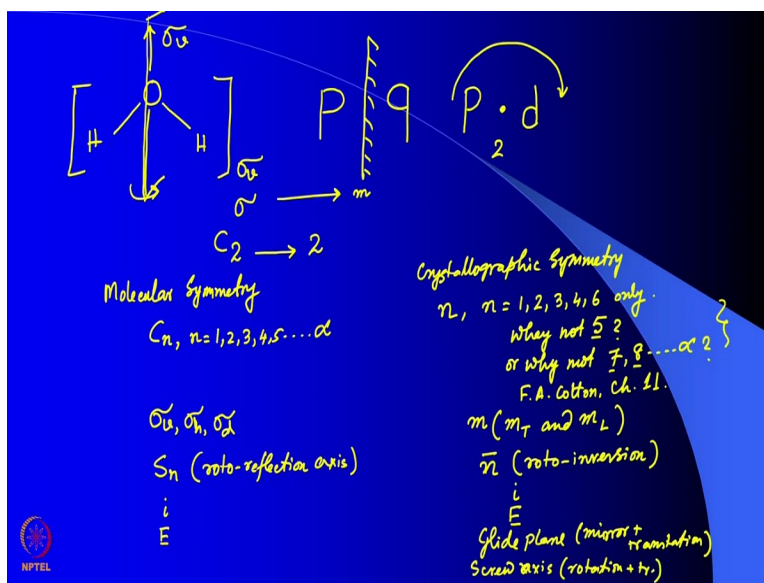 σv
O
H H
σv
P q
m
P . d
2
σ ⟶ m
C2 ⟶ 2
Molecular Symmetry
Cn, n=1,2,3,4,5....α
σv, σh, σd
Sn (roto-reflection axis)
i
E
Crystallographic Symmetry
n, n=1,2,3,4,6 only.
whey not 5?
or why not 7,8....α?
F.A. Cotton, Ch. 11.
m (mT and mL)
n̄ (roto-inversion)
i
E
Glide plane (mirror + translation)
Screw axis (rotation + tr.)
NPTEL